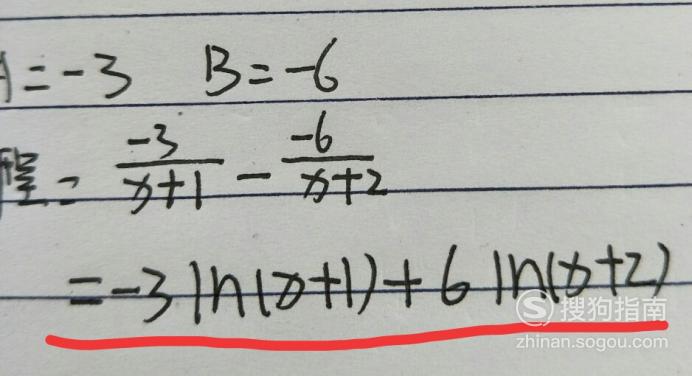 A=-3 B=-6
程= -3/(x+1) - -6/(x+2)
=-3 ln(x+1)+6 ln(x+2)
S 搜狗指南
zhinan.sogou.com